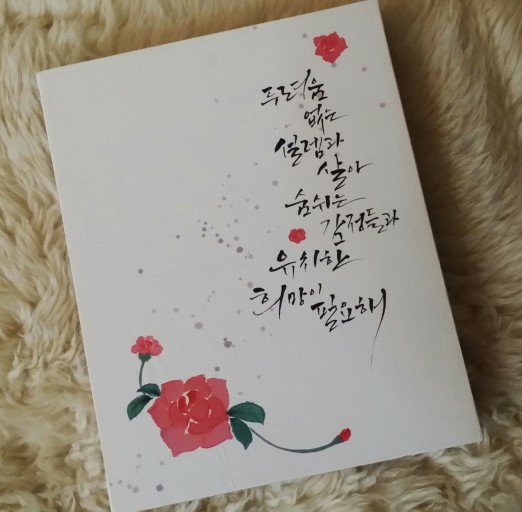 두려움
없는
설렘과
살아
숨쉬는
감정들과
유치한
희망이
필요해